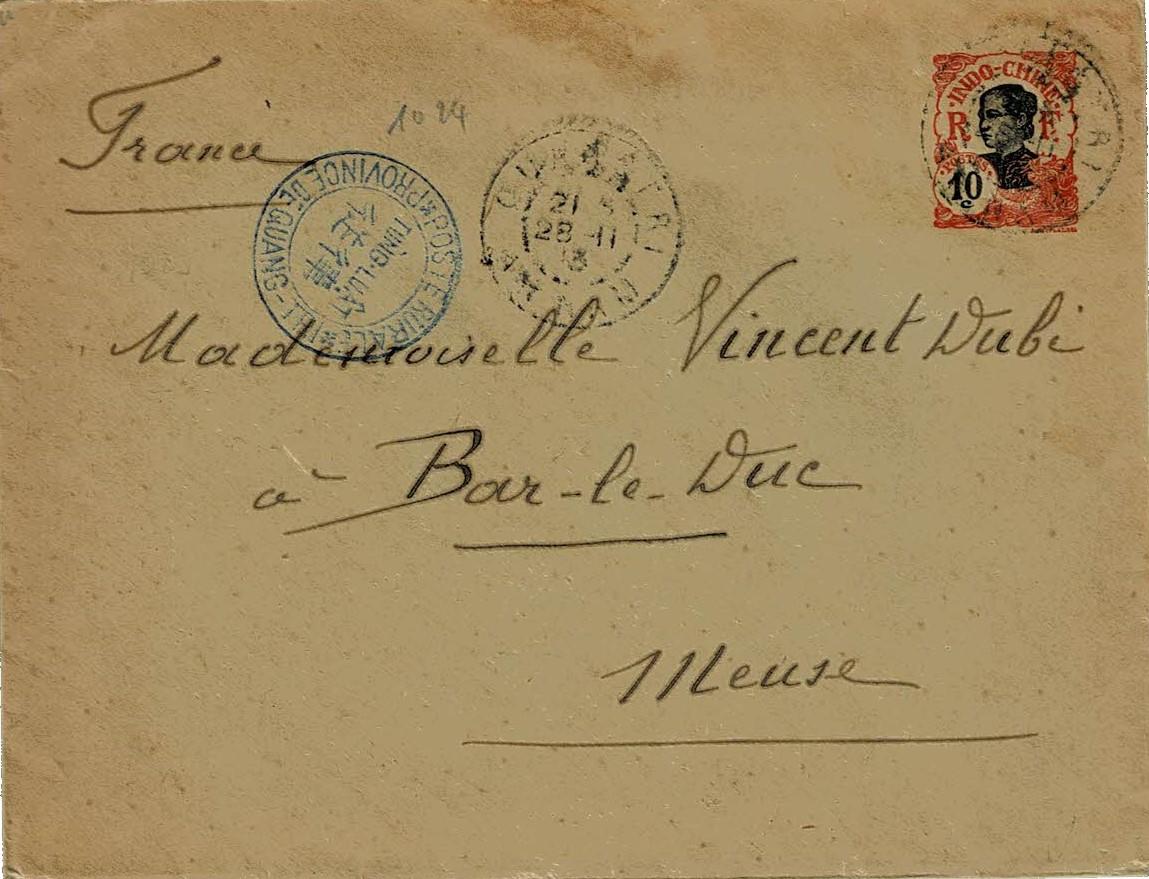 France
1024
INDO-CHINE
R F
10
c
POSTE RURALE PROVINCE DE QUANG-
TUNG-LUAT
21
28 -11
13
Mademoiselle Vincent Dubi
à Bar-le-Duc
Meuse